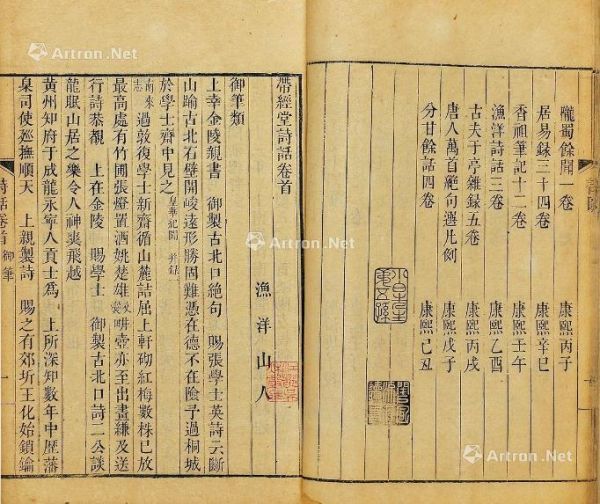 隴蜀餘聞一卷 康熙丙子
居易録三十四卷 康熙辛巳
香祖筆記十二卷 康熙壬午
漁洋詩話三卷 康熙乙酉
古夫于亭雜録五卷 康熙丙戌
唐人萬首絶句選凡例 康熙戊子
分甘餘話四卷 康熙己丑
帶經堂詩話卷首
漁洋山人
御筆類
上幸金陵親書 御製古北口絶句 賜張學士英詩云斷
山踰古北石壁開峻遠形勝固難憑在德不在險予過桐城
於學士齋中見之
南來志
過敦復學士新齋循山麓詰屈上軒砌紅梅數株已放
最高處有竹圃張燈置酒姚楚雄 壺亦至出畫縑及送
行詩恭觀 上在金陵 賜學士 御製古北口詩二公談
龍眠山居之樂令人神爽飛越
黄州知府于成龍永寧人貢士爲 上所深知數年中歴藩
臬司使廵撫順天 上親製詩 賜之有郊圻王化始鎖鑰
詩話卷首 御筆
Artron.Net
Artron.Net
Artron.Net
Artron.Net
Artron.Net